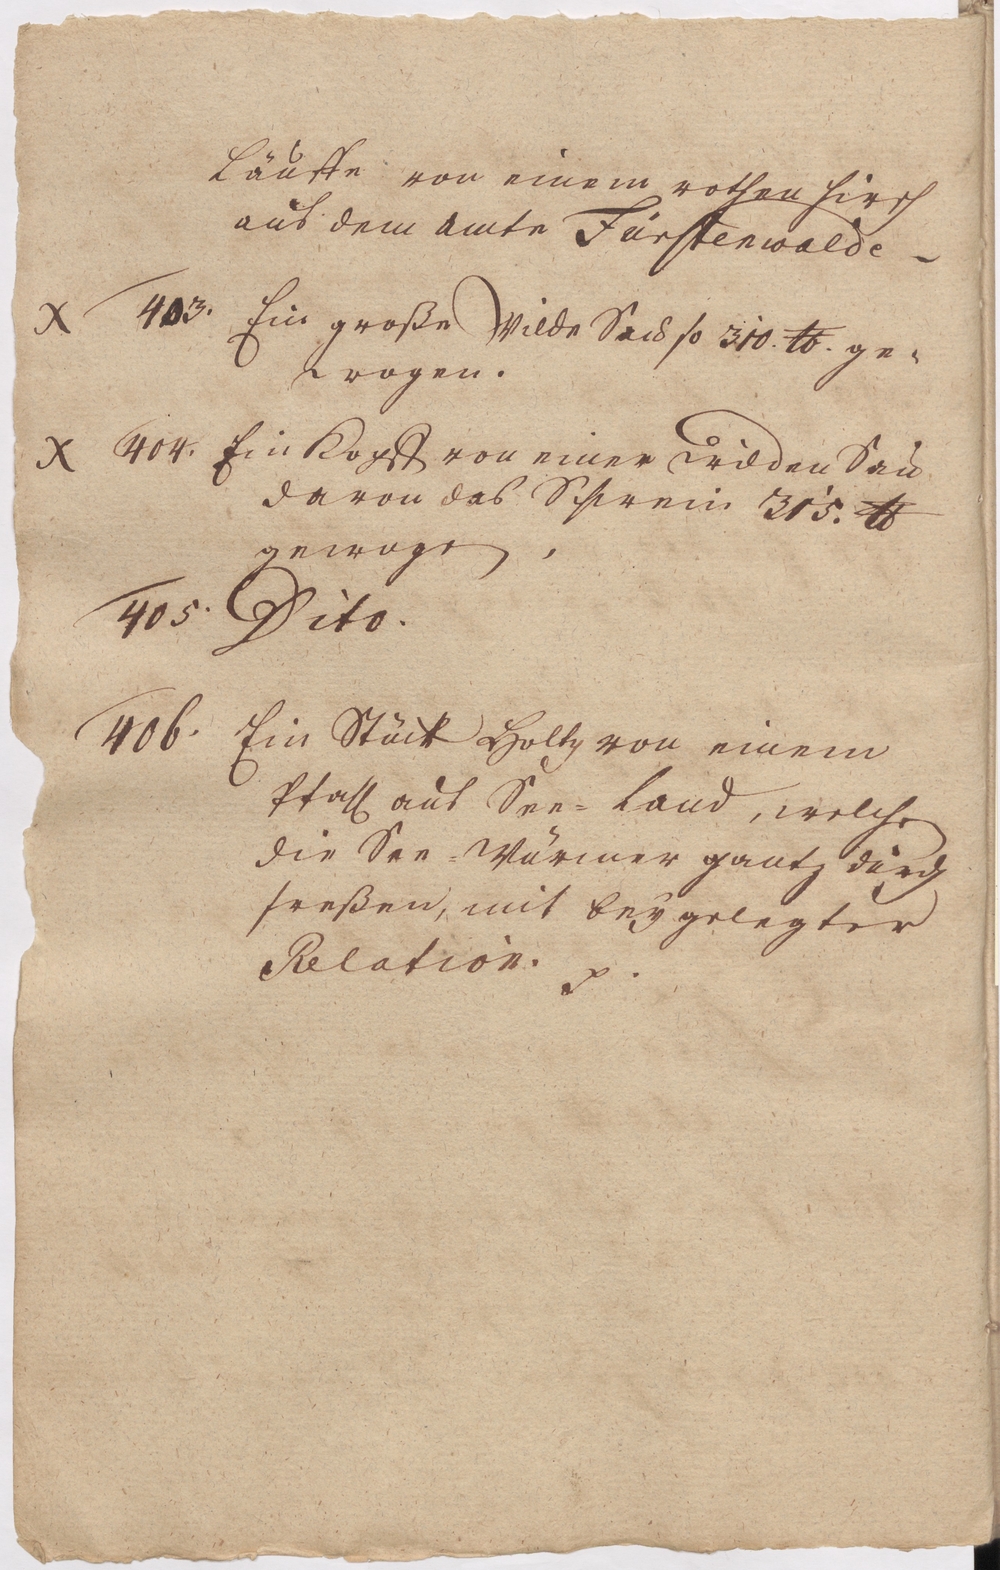 Läuffe von einem rothen Hirsch
aus dem Amte Fürstenwalde -
X 403. Ein große Wilde Sau so 310. ℔. ge-
wogen.
X 404. Ein Kopff von einer wilden Sau
davon das Schwein 315. ℔
gewogen,
405. Dito.
406. Ein Stück Holtz von einem
Pfall aus See-Land, welche
die See-Würmer gantz durch
freßen, mit beygelegter
Relation. p.